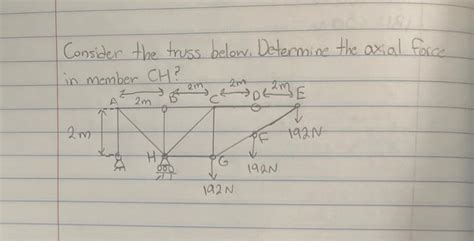 Consider the truss below. Determine the axial force
in member CH?
2m 2m 2m 2m
A B C D E
2m
H G F 192N
192N
192N